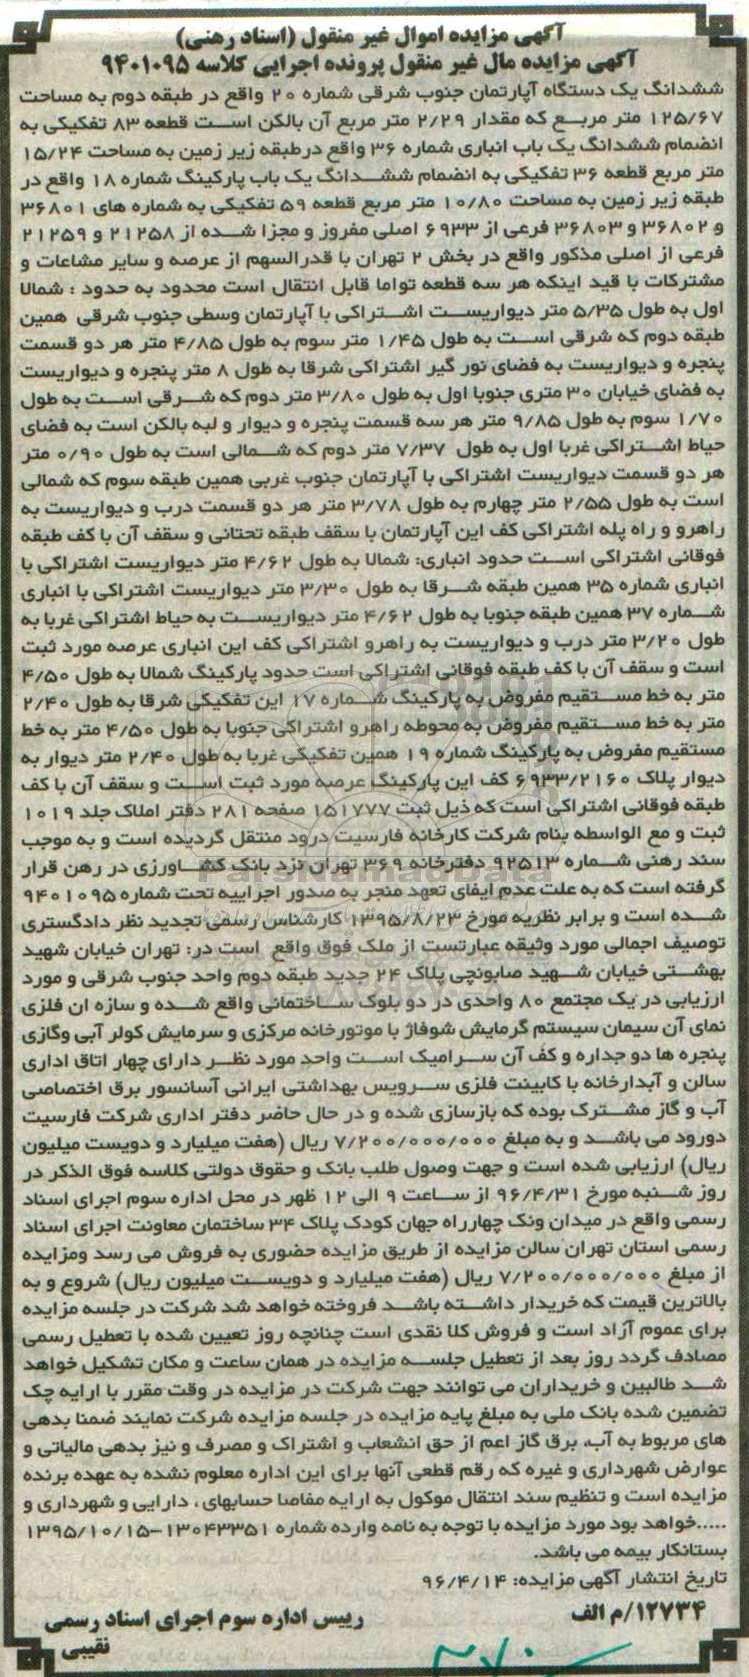 آگهی مزایده اموال غیر منقول (اسناد رهنی)
آگهی مزایده مال غیر منقول پرونده اجرایی کلاسه ۹۴۰۱۰۹۵
ششدانگ یک دستگاه آپارتمان جنوب شرقی شماره ۲۰ واقع در طبقه دوم به مساحت
۱۲۵/۶۷ متر مربع که مقدار ۲/۲۹ متر مربع آن بالکن است قطعه ۸۳ تفکیکی به
انضمام ششدانگ یک باب انباری شماره ۳۶ واقع درطبقه زیر زمین به مساحت ۱۵/۲۴
متر مربع قطعه ۳۶ تفکیکی به انضمام ششدانگ یک باب پارکینگ شماره ۱۸ واقع در
طبقه زیر زمین به مساحت ۱۰/۸۰ متر مربع قطعه ۵۹ تفکیکی به شماره های ۳۶۸۰۱
و ۳۶۸۰۲ و ۳۶۸۰۳ فرعی از ۶۹۳۳ اصلی مفروز و مجزا شده از ۲۱۲۵۸ و ۲۱۲۵۹
فرعی از اصلی مذکور واقع در بخش ۲ تهران با قدرالسهم از عرصه و سایر مشاعات و
مشترکات با قید اینکه هر سه قطعه تواما قابل انتقال است محدود به حدود : شمالا
اول به طول ۵/۳۵ متر دیواریست اشتراکی با آپارتمان وسطی جنوب شرقی همین
طبقه دوم که شرقی است به طول ۱/۴۵ متر سوم به طول ۴/۸۵ متر هر دو قسمت
پنجره و دیواریست به فضای نور گیر اشتراکی شرقا به طول ۸ متر پنجره و دیواریست
به فضای خیابان ۳۰ متری جنوبا اول به طول ۳/۸۰ متر دوم که شرقی است به طول
۱/۷۰ سوم به طول ۹/۸۵ متر هر سه قسمت پنجره و دیوار و لبه بالکن است به فضای
حیاط اشتراکی غربا اول به طول ۷/۳۷ متر دوم که شمالی است به طول ۰/۹۰ متر
هر دو قسمت دیواریست اشتراکی با آپارتمان جنوب غربی همین طبقه سوم که شمالی
است به طول ۲/۵۵ متر چهارم به طول ۳/۷۸ متر هر دو قسمت درب و دیواریست به
راهرو و راه پله اشتراکی کف این آپارتمان با سقف طبقه تحتانی و سقف آن با کف طبقه
فوقانی اشتراکی است حدود انباری: شمالا به طول ۴/۶۲ متر دیواریست اشتراکی با
انباری شماره ۳۵ همین طبقه شرقا به طول ۳/۳۰ متر دیواریست اشتراکی با انباری
شماره ۳۷ همین طبقه جنوبا به طول ۴/۶۲ متر دیواریست به حیاط اشتراکی غربا به
طول ۳/۲۰ متر درب و دیواریست به راهرو اشتراکی کف این انباری عرصه مورد ثبت
است و سقف آن با کف طبقه فوقانی اشتراکی است حدود پارکینگ شمالا به طول ۴/۵۰
متر به خط مستقیم مفروض به پارکینگ شماره ۱۷ این تفکیکی شرقا به طول ۲/۴۰
متر به خط مستقیم مفروض به محوطه راهرو اشتراکی جنوبا به طول ۴/۵۰ متر به خط
مستقیم مفروض به پارکینگ شماره ۱۹ همین تفکیکی غربا به طول ۲/۴۰ متر دیوار به
دیوار پلاک ۶۹۳۳/۲۱۶۰ کف این پارکینگ عرصه مورد ثبت است و سقف آن با کف
طبقه فوقانی اشتراکی است که ذیل ثبت ۱۵۱۷۷۷ صفحه ۲۸۱ دفتر املاک جلد ۱۰۱۹
ثبت و مع الواسطه بنام شرکت کارخانه فارسیت درود منتقل گردیده است و به موجب
سند رهنی شماره ۹۲۵۱۳ دفترخانه ۳۶۹ تهران نزد بانک کشاورزی در رهن قرار
گرفته است که به علت عدم ایفای تعهد منجر به صدور اجراییه تحت شماره ۹۴۰۱۰۹۵
شده است و برابر نظریه مورخ ۱۳۹۵/۸/۲۳ کارشناس رسمی تجدید نظر دادگستری
توصیف اجمالی مورد وثیقه عبارتست از ملک فوق واقع است در: تهران خیابان شهید
بهشتی خیابان شهید صابونچی پلاک ۲۴ جدید طبقه دوم واحد جنوب شرقی و مورد
ارزیابی در یک مجتمع ۸۰ واحدی در دو بلوک ساختمانی واقع شده و سازه ان فلزی
نمای آن سیمان سیستم گرمایش شوفاژ با موتورخانه مرکزی و سرمایش کولر آبی وگازی
پنجره ها دو جداره و کف آن سرامیک است واحد مورد نظر دارای چهار اتاق اداری
سالن و آبدارخانه با کابینت فلزی سرویس بهداشتی ایرانی آسانسور برق اختصاصی
آب و گاز مشترک بوده که بازسازی شده و در حال حاضر دفتر اداری شرکت فارسیت
دورود می باشد و به مبلغ ۷/۲۰۰/۰۰۰/۰۰۰ ریال (هفت میلیارد و دویست میلیون
ریال) ارزیابی شده است و جهت وصول طلب بانک و حقوق دولتی کلاسه فوق الذکر در
روز شنبه مورخ ۹۶/۴/۳۱ از ساعت ۹ الی ۱۲ ظهر در محل اداره سوم اجرای اسناد
رسمی واقع در میدان ونک چهارراه جهان کودک پلاک ۳۴ ساختمان معاونت اجرای اسناد
رسمی استان تهران سالن مزایده از طریق مزایده حضوری به فروش می رسد ومزایده
از مبلغ ۷/۲۰۰/۰۰۰/۰۰۰ ریال (هفت میلیارد و دویست میلیون ریال) شروع و به
بالاترین قیمت که خریدار داشته باشد فروخته خواهد شد شرکت در جلسه مزایده
برای عموم آزاد است و فروش کلا نقدی است چنانچه روز تعیین شده با تعطیل رسمی
مصادف گردد روز بعد از تعطیل جلسه مزایده در همان ساعت و مکان تشکیل خواهد
شد طالبین و خریداران می توانند جهت شرکت در مزایده در وقت مقرر با ارایه چک
تضمین شده بانک ملی به مبلغ پایه مزایده در جلسه مزایده شرکت نمایند ضمنا بدهی
های مربوط به آب، برق گاز اعم از حق انشعاب و اشتراک و مصرف و نیز بدهی مالیاتی و
عوارض شهرداری و غیره که رقم قطعی آنها برای این اداره معلوم نشده به عهده برنده
مزایده است و تنظیم سند انتقال موکول به ارایه مفاصا حسابهای ، دارایی و شهرداری و
.....خواهد بود مورد مزایده با توجه به نامه وارده شماره ۱۳۰۴۳۳۵۱-۱۳۹۵/۱۰/۱۵
بستانکار بیمه می باشد.
تاریخ انتشار آگهی مزایده: ۹۶/۴/۱۴
۱۲۷۳۴/م الف
رییس اداره سوم اجرای اسناد رسمی
نقیبی